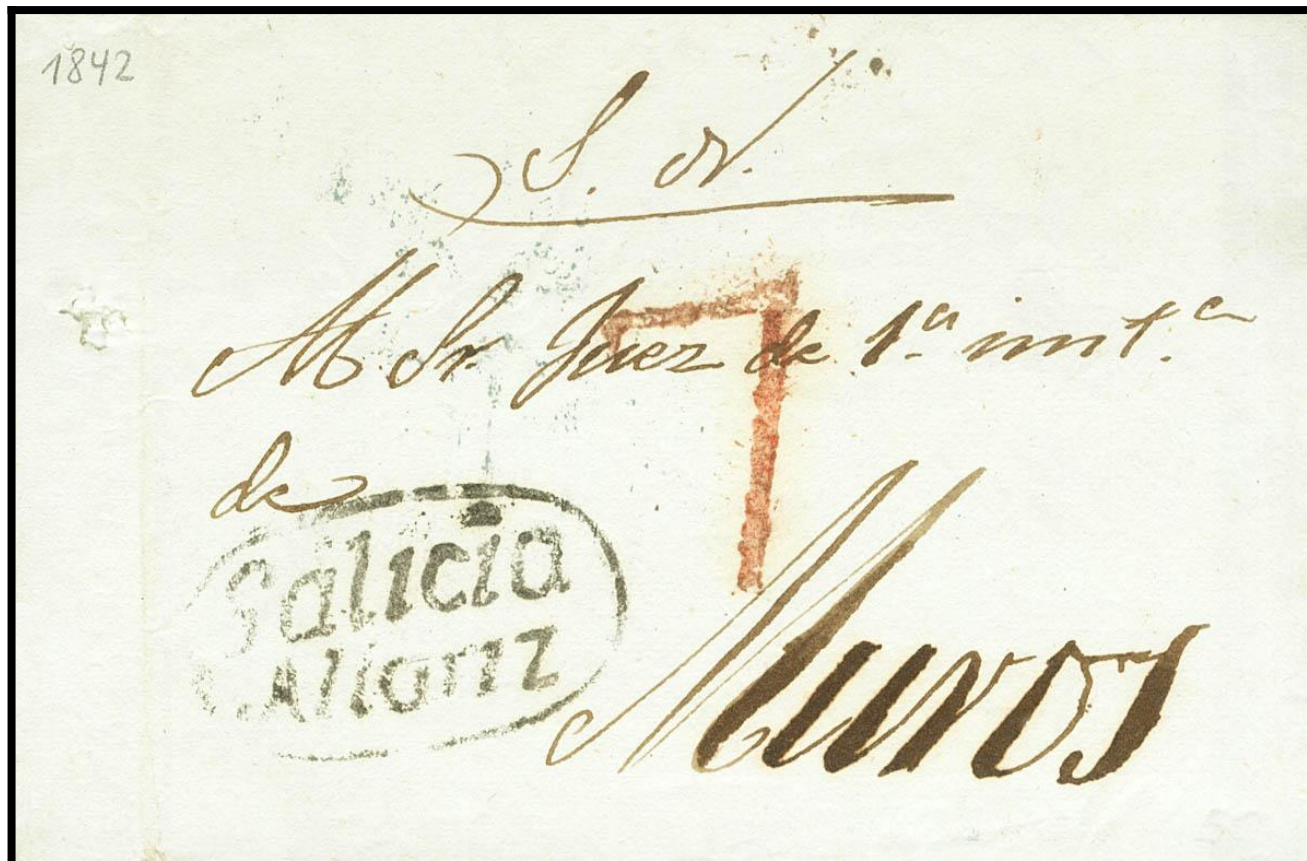 1842
S. N.
Al Sr. Juez de 1.ª inst.ª
de
Galicia
Allariz
7
Muros